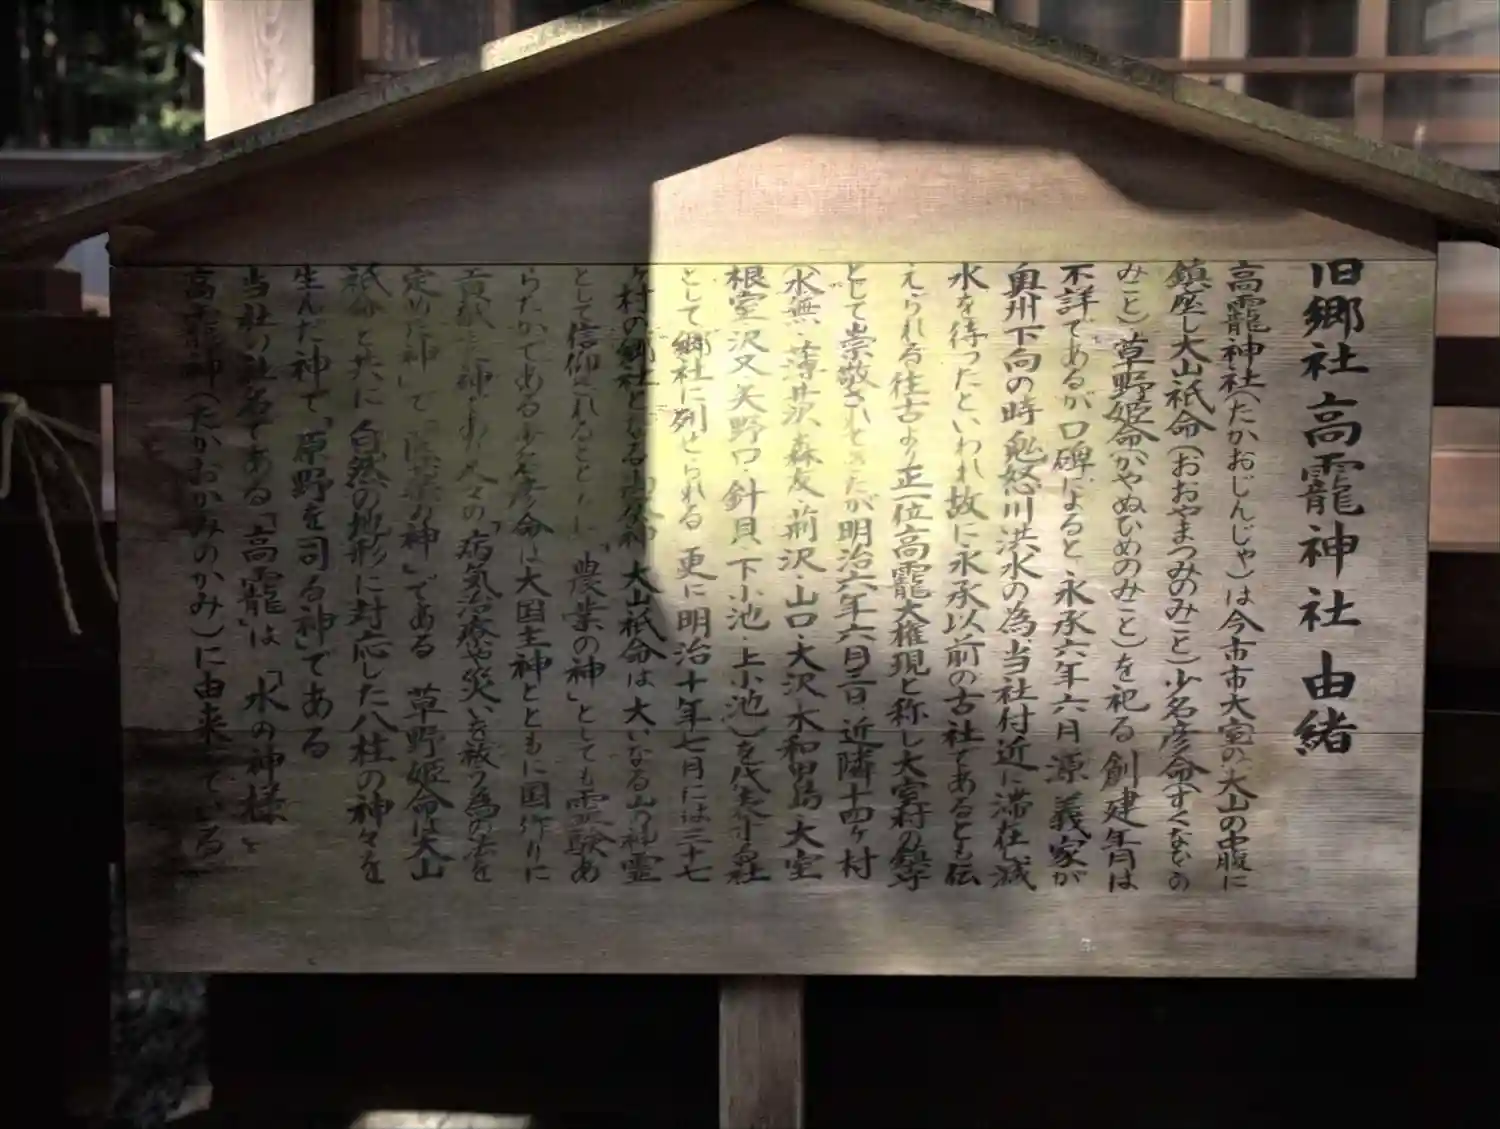 旧郷社高靇神社由緒
高靇神社(たかおじんじゃ)は今市市大室の大山の中腹に
鎮座し大山祇命(おおやまつみのみこと)少名彦命(すくなひこのみこと)草野姫命(かやぬひめのみこと)を祀る 創建年月は
不詳であるが口碑によると永承六年六月源義家が
奥州下向の時鬼怒川洪水の為、当社付近に滞在し減
水を待ったといわれ故に永承以前の古社であるとも伝
えられる往古より正一位高靇大権現と称し大室村の鎮守
として崇敬されて
きたが明治六年六月三日近隣十四ヶ村
(水無・薄井沢・森友・荊沢・山口・大沢・水和田島・大室
根室・沢又・矢野口・針貝・下小池・上小池)を代表する社
として郷社に列せられる 更に明治十年七月には三十七
ヶ村の郷社となる 大山祇命は大いなる山の神霊
として信仰されるとともに「農業の神」としても霊験あ
らたかである 少名彦命は大国主神とともに国作りに
貢献した神であり人々の「病気治療や災いを祓う為の法を
定めた神」で「医薬の神」である 草野姫命は大山
祇命と共に自然の地形に対応した八柱の神々を
生んだ神で「原野を司る神」である
当社の社名である「高靇」は「水の神様」と
高靇神(たかおかみのかみ)に由来している